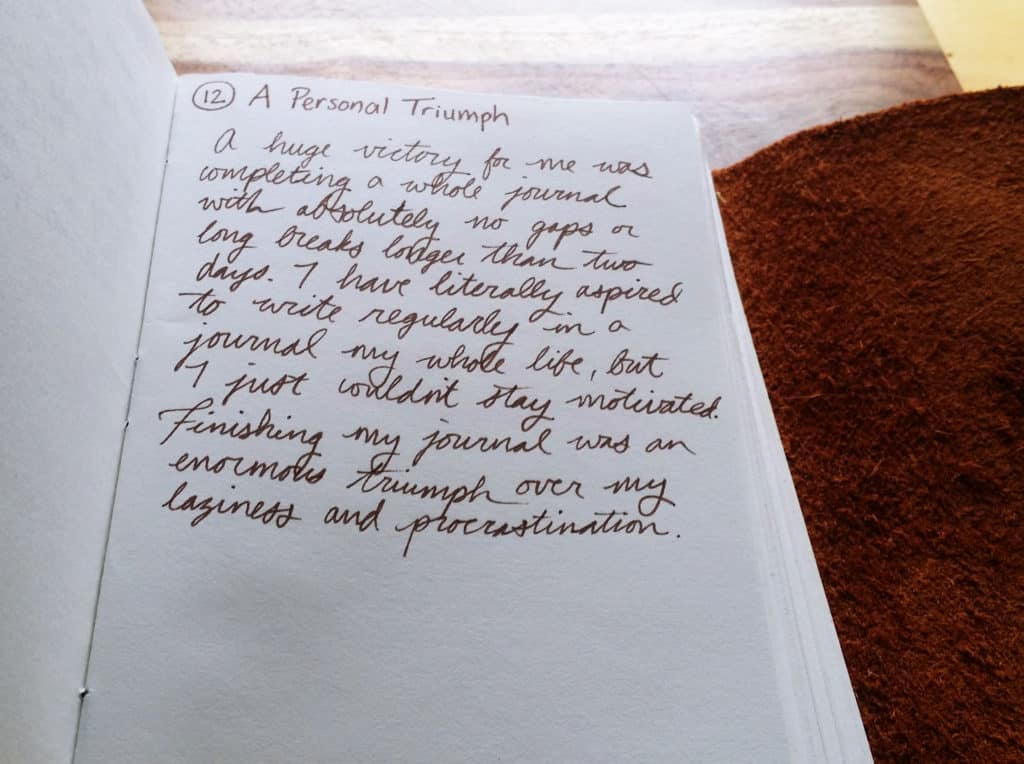 12 A Personal Triumph
A huge victory for me was
completing a whole journal
with absolutely no gaps or
long breaks longer than two
days. I have literally aspired
to write regularly in a
journal my whole life, but
I just couldn't stay motivated.
Finishing my journal was an
enormous triumph over my
laziness and procrastination.